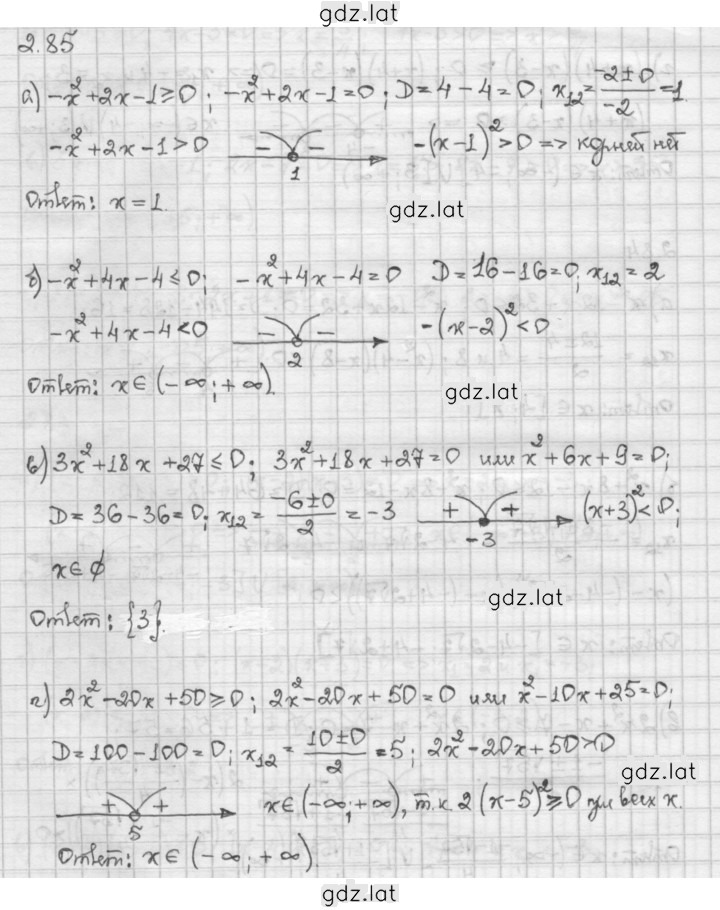 gdz.lat
2.85
а) -x²+2x-1≥0; -x²+2x-1=0; D=4-4=0; x₁₂=(-2±0)/(-2)=1.
-x²+2x-1>0 - - 1 -(x-1)²>0 => корней нет
Ответ: x=1.
gdz.lat
б) -x²+4x-4≤0; -x²+4x-4=0 D=16-16=0; x₁₂=2
-x²+4x-4<0 - - 2 -(x-2)²<0
Ответ: x∈(-∞;+∞).
gdz.lat
в) 3x²+18x+27≤0; 3x²+18x+27=0 или x²+6x+9=0;
D=36-36=0; x₁₂=(-6±0)/2=-3 + + -3 (x+3)²<0;
x∈∅
gdz.lat
Ответ: {3}.
г) 2x²-20x+50≥0; 2x²-20x+50=0 или x²-10x+25=0;
D=100-100=0; x₁₂=(10±0)/2=5; 2x²-20x+50>0
gdz.lat
+ + 5 x∈(-∞;+∞), т.к. 2(x-5)²≥0 для всех x.
Ответ: x∈(-∞;+∞).
gdz.lat